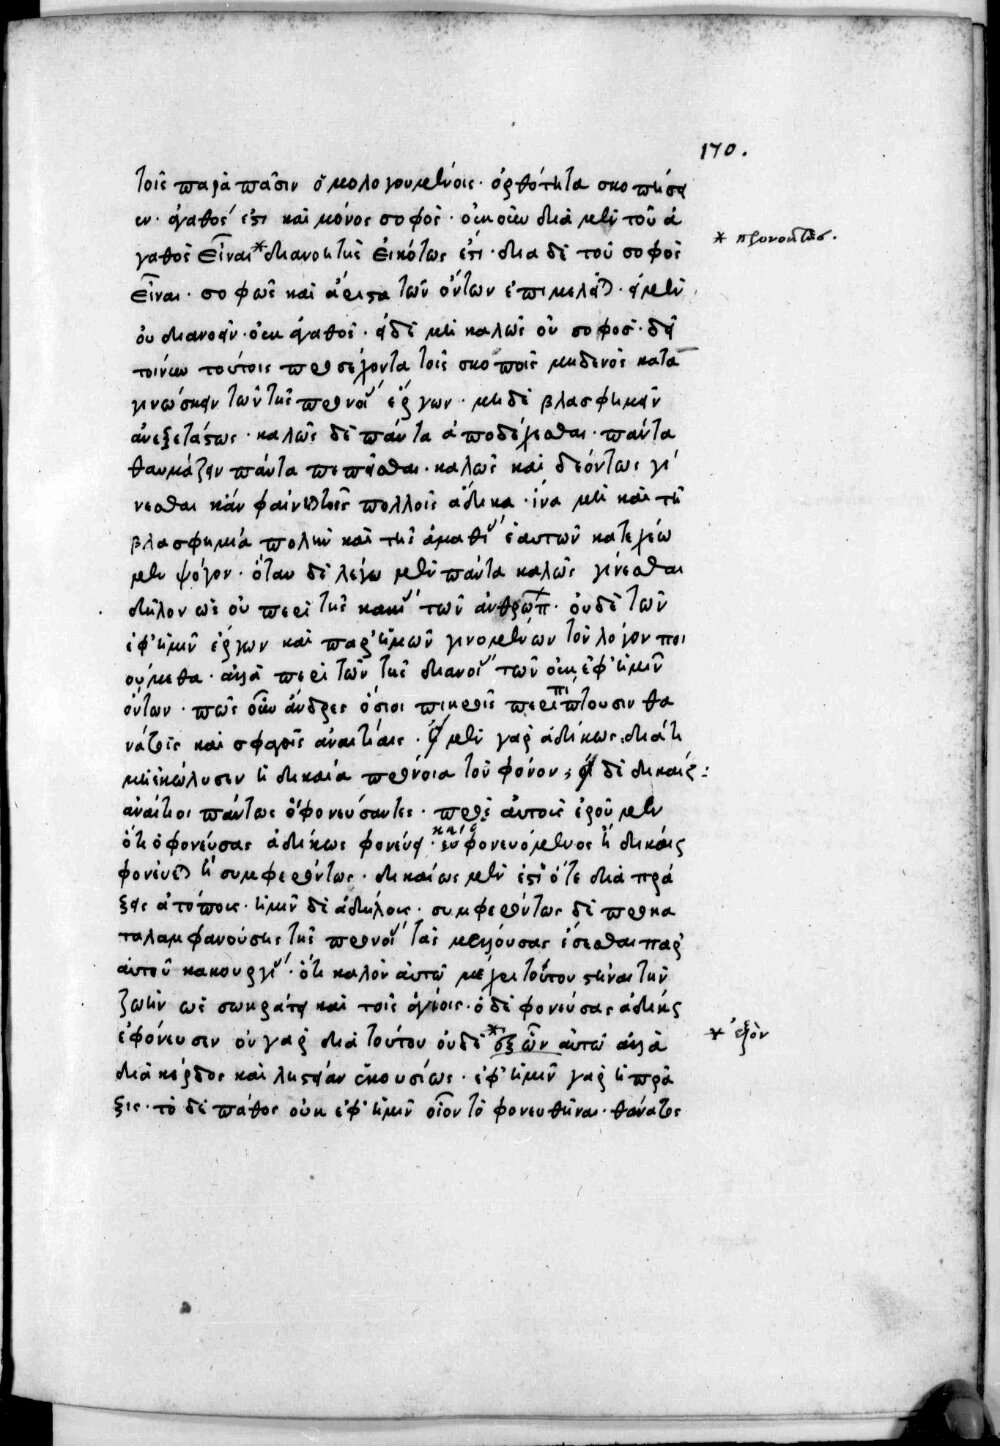 170.
τοῖς παρὰ πᾶσιν ὁμολογουμένοις · ὀρθότητα σκοπήσει
εν · ἀγαθός ἐστι καὶ μόνος σοφός · οὐκοῦν διὰ μὲν τοῦ ἀ
γαθὸς εἶναι * διανοητὴς εἰκότως ἐστί · διὰ δὲ τοῦ σοφὸς
* προνοητὴς.
εἶναι · σοφῶς καὶ ἄριστα τῶν ὄντων ἐπιμελεῖται · εἰ μὲν
οὐ διανοεῖν · οὐκ ἀγαθός · εἰ δὲ μὴ καλῶς οὐ σοφός · δεῖ
τοίνυν τούτοις προσέχοντα τοῖς σκοποῖς μηδενὸς κατα
γινώσκειν τῶν τῆς προνοίας ἔργων · μηδὲ βλασφημεῖν
ἀνεξετάστως · καλῶς δὲ πάντα ἀποδέχεσθαι · πάντα
θαυμάζειν πάντα πεπεῖσθαι · καλῶς καὶ δεόντως γί
νεσθαι κἂν φαίνηται τοῖς πολλοῖς ἄδικα · ἵνα μὴ καὶ τῇ
βλασφημίᾳ πολὺν καὶ τῆς ἀμαθίας ἑαυτῶν κατεχέω
μεν ψόγον · ὅταν δὲ λέγωμεν πάντα καλῶς γίνεσθαι
δῆλον ὡς οὐ περὶ τῆς κακίας τῶν ἀνθρώπ · οὐδὲ τῶν
ἐφ' ἡμῖν ἔργων καὶ παρ' ἡμῶν γινομένων τὸν λόγον ποι
ούμεθα · ἀλλὰ περὶ τῶν τῆς διανοίας τῶν οὐκ ἐφ' ἡμῖν
ὄντων · πῶς οὖν ἄνδρες ὅσιοι πικροῖς περιπίπτουσιν θα
νάτοις καὶ σφαγαῖς ἀναιτίαις · εἰ μὲν γὰρ ἀδίκως · διατί
μὴ ἐκώλυσεν ἡ δικαία πρόνοια τὸν φόνον ; εἰ δὲ δικαίως :
ἀναίτιοι πάντως οἱ φονεύσαντες · πρὸς αὐτοὺς ἐροῦμεν
ὅτι ὁ φονεύσας ἀδίκως φονεύει · καὶ ὁ φονευόμενος ἢ δικαίως
φονεύεται ἢ συμφερόντως · δικαίως μὲν ἐστὶ ὅτε διὰ πρά
ξεις ἀτόπους · ἡμῖν δὲ ἀδήλους · συμφερόντως δὲ προκα
ταλαμβανούσης τῆς προνοίας τὰς μελλούσας ἔσεσθαι παρ'
αὐτοῦ κακουργίας · ὅτι καλὸν αὐτῷ μέχρι τούτου στῆναι τὴν
ζωὴν ὡς σωκράτει καὶ τοῖς ἁγίοις · ὁ δὲ φονεύσας ἀδίκως
ἐφόνευσεν οὐ γὰρ διὰ τούτου οὐδὲ * ὀξῶν αὐτῷ ἀλλὰ
* ἐξὸν
διὰ κέρδος καὶ λῃστείαν ἑκουσίως · ἐφ' ἡμῖν γὰρ ἡ πρᾶ
ξις · τὸ δὲ πάθος οὐκ ἐφ' ἡμῖν οἷον τὸ φονευθῆναι · θάνατος